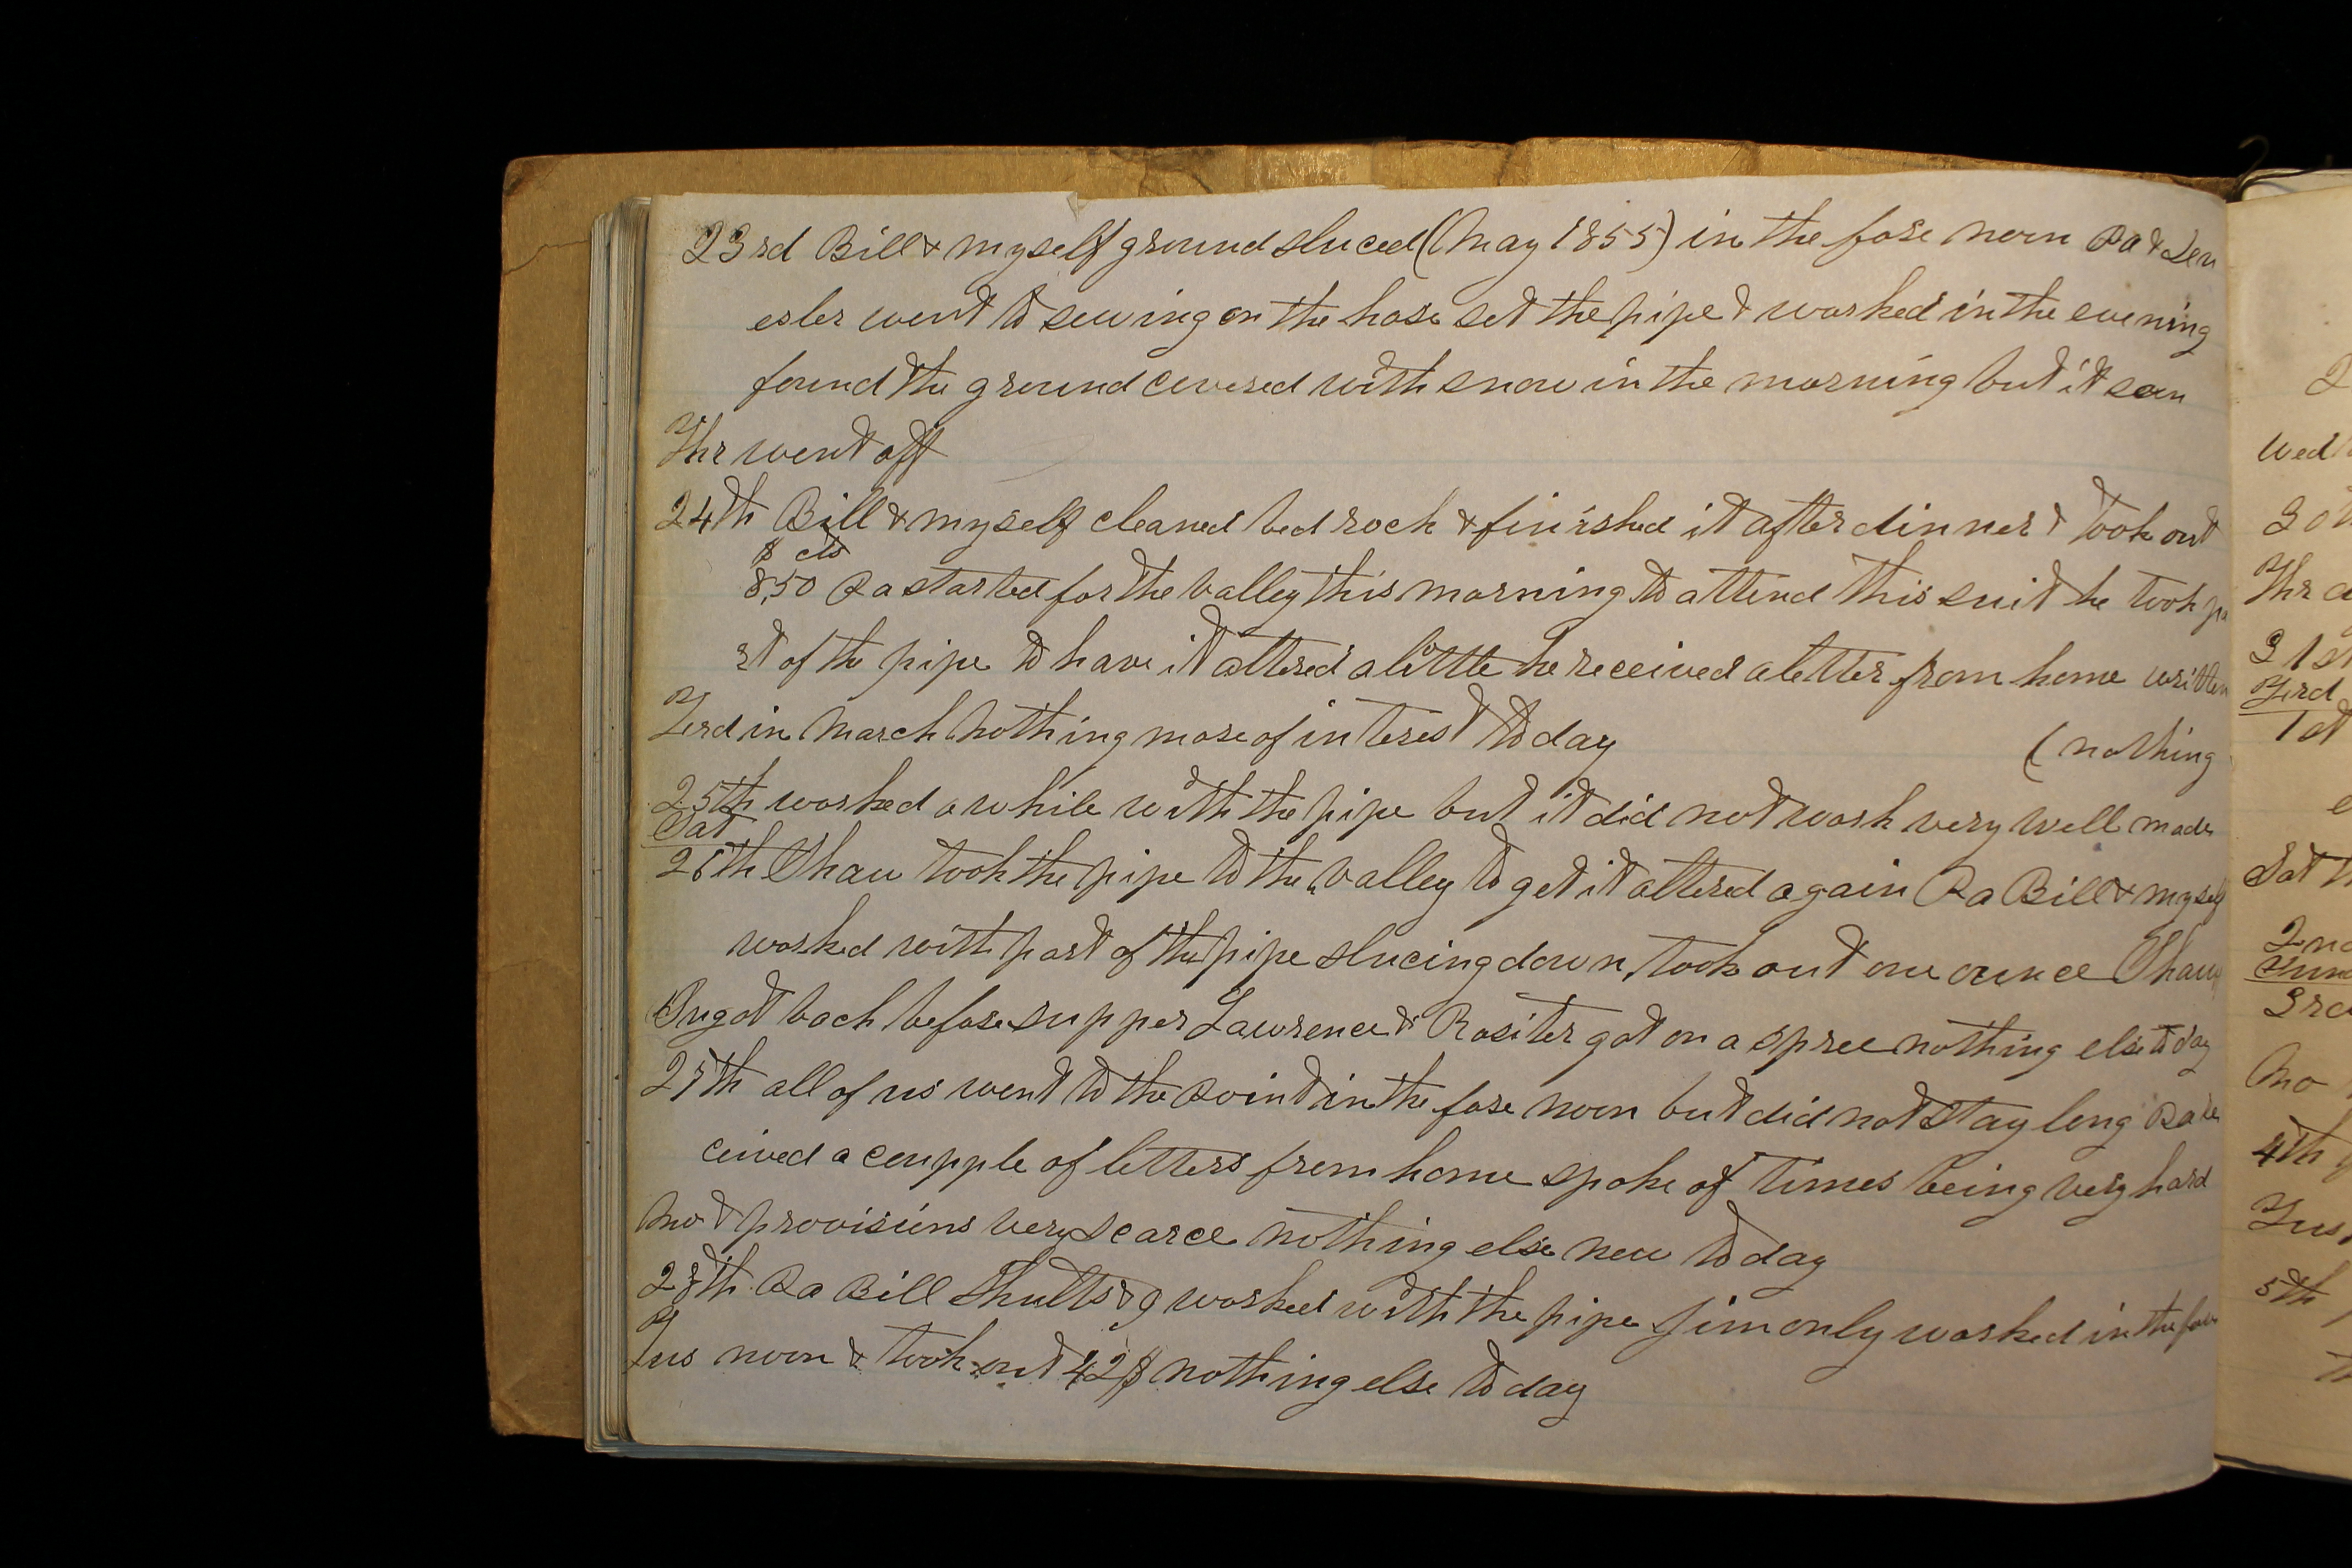 23rd Bill & myself ground sluced (May 1855) in the fore noon Pa & Len
esler went to sewing on the hose set the pipe & worked in the evening
found the ground covered with snow in the morning but it soon
Thr went off
24th Bill & myself cleaned bed rock & finished it after dinner & took out
$ cts
8,50 Pa started for the valley this morning to attend this suit he took pa
rt of the pipe to have it altered a little he received a letter from home written
Frd in March nothing more of interest to day (nothing
25th worked a while with the pipe but it did not wash very well made
Sat
26th Shaw took the pipe to the valley to get it altered again Pa Bill & myself
worked with part of the pipe slucing down, took out one ounce Shaw
Sun got back before supper Lawrence & Rositer got on a spree nothing else to day
27th all of us went to the Point in the fore noon but did not stay long Pa re
ceived a coupple of letters from home spoke of times being very hard
Mo & provisions very scarce nothing else new to day
28th Pa Bill Shults & I worked with the pipe Jim only worked in the fore
Tus noon & took out 42$ nothing else to day
Wed
30
Thr
31st
Frd
1st
Sat
2nd
3rd
Mo
4th
Tus
5th